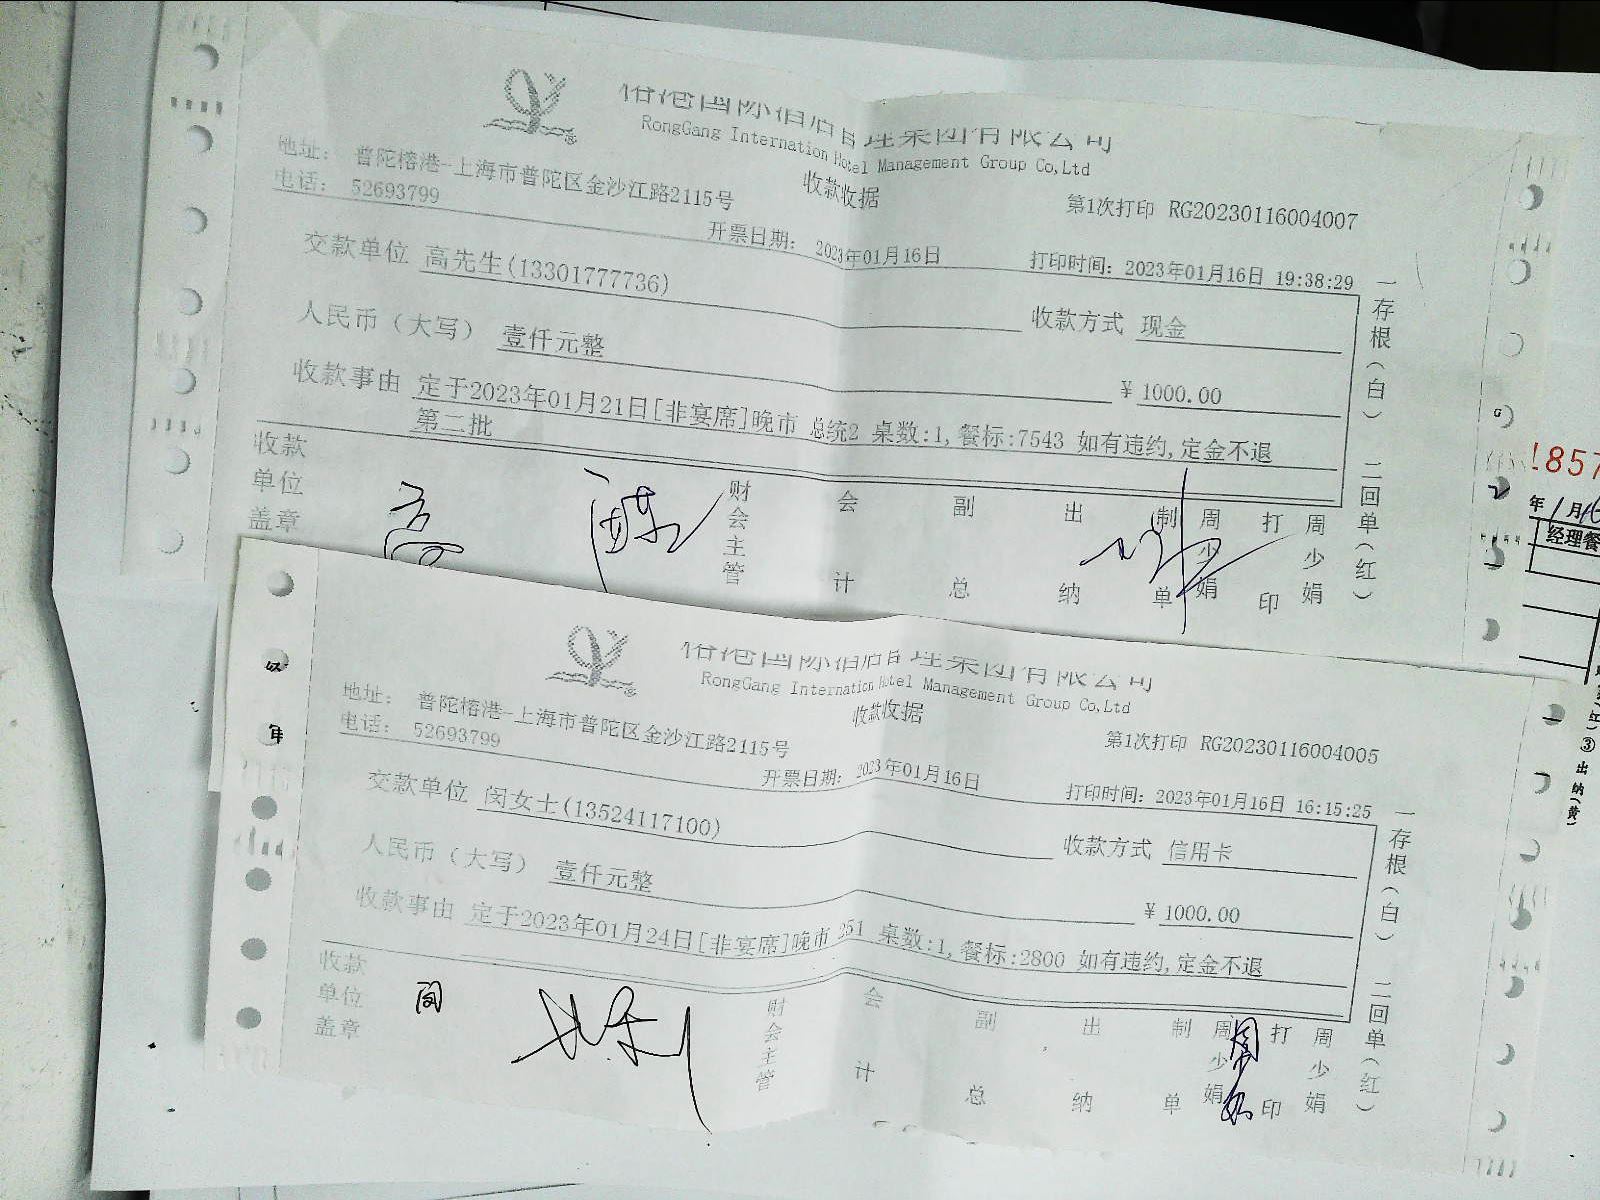 榕港国际酒店管理集团有限公司
RongGang Internation Hotel Management Group Co,Ltd
地址: 普陀榕港-上海市普陀区金沙江路2115号
电话: 52693799
收款收据
第1次打印 RG20230116004007
开票日期: 2023年01月16日
打印时间: 2023年01月16日 19:38:29
交款单位 高先生(13301777736)
收款方式 现金
人民币(大写) 壹仟元整
¥ 1000.00
收款事由 定于2023年01月21日[非宴席]晚市 总统2 桌数:1,餐标:7543 如有违约,定金不退
第二批
收款单位盖章
财会主管
会计
副总
出纳
制单 周少娟
打印 周少娟
一存根(白) 二回单(红)
榕港国际酒店管理集团有限公司
RongGang Internation Hotel Management Group Co,Ltd
地址: 普陀榕港-上海市普陀区金沙江路2115号
电话: 52693799
收款收据
第1次打印 RG20230116004005
开票日期: 2023年01月16日
打印时间: 2023年01月16日 16:15:25
交款单位 闵女士(13524117100)
收款方式 信用卡
人民币(大写) 壹仟元整
¥ 1000.00
收款事由 定于2023年01月24日[非宴席]晚市 251 桌数:1,餐标:2800 如有违约,定金不退
收款单位盖章
财会主管
会计
副总
出纳
制单 周少娟
打印 周少娟
一存根(白) 二回单(红)
1857
年1月16
经理餐
(红) ③出纳(黄)